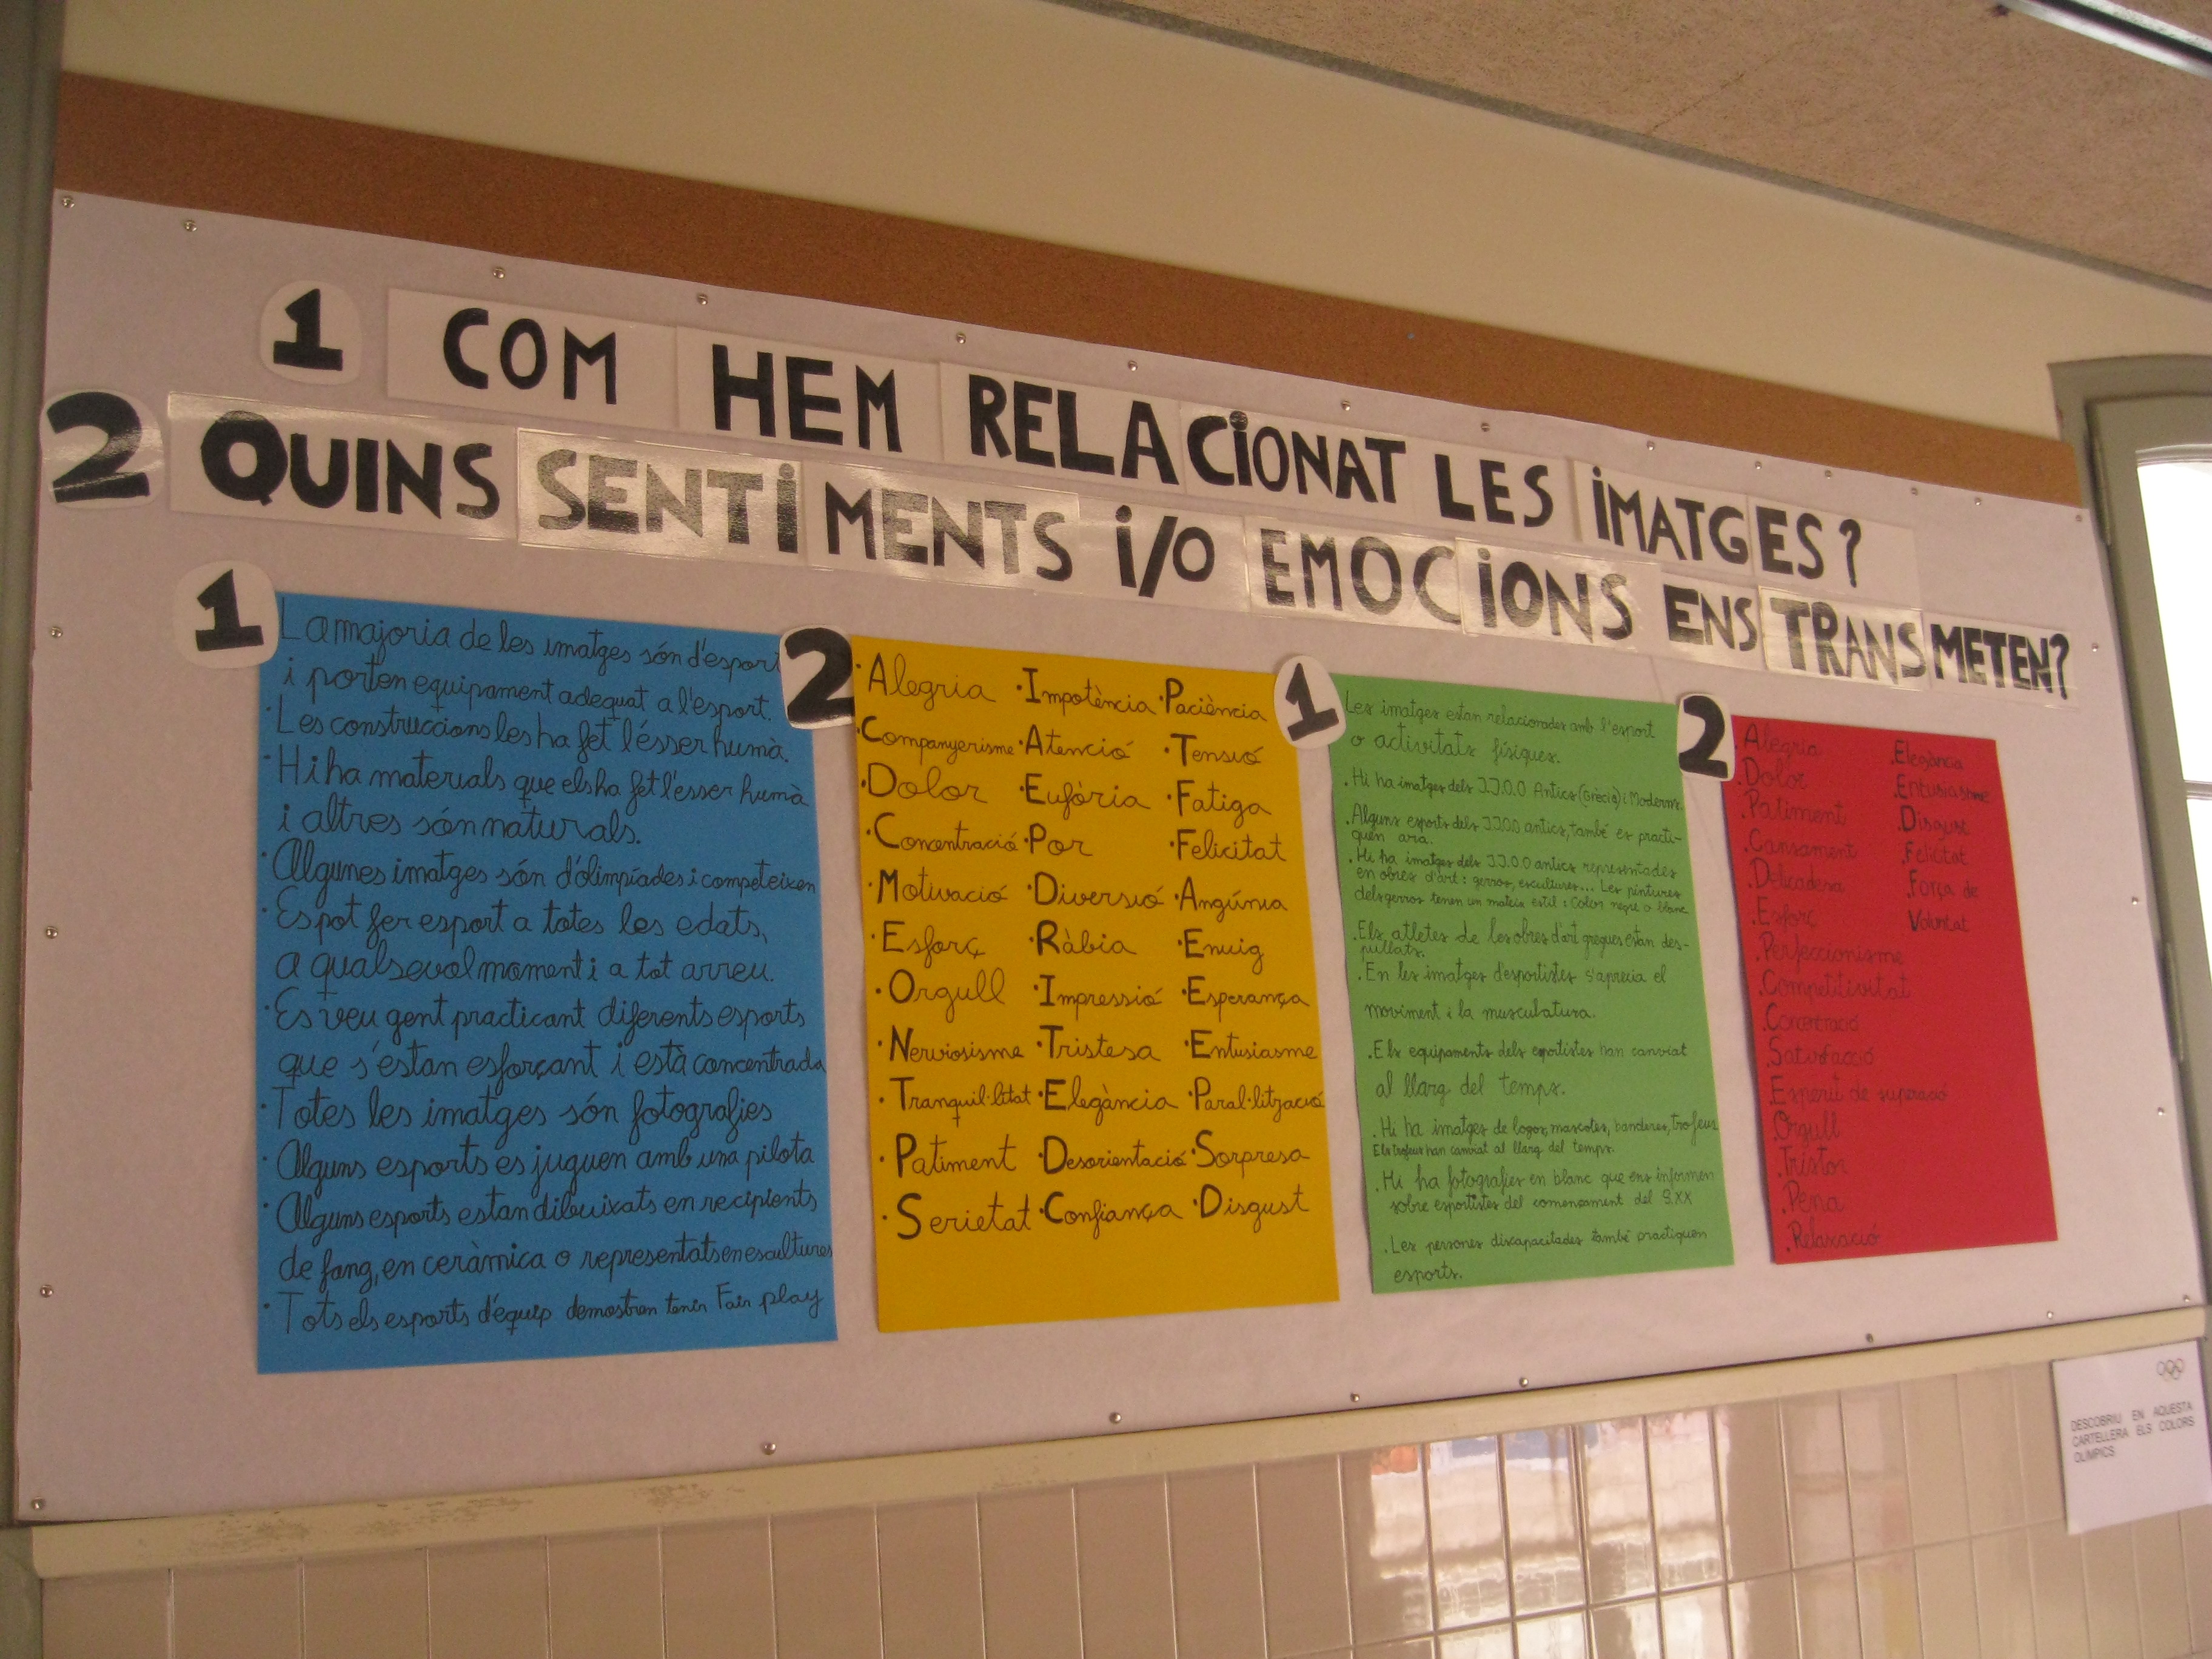 1 COM HEM RELACIONAT LES IMATGES?
2 QUINS SENTIMENTS I/O EMOCIONS ENS TRANSMETEN?
1
La majoria de les imatges són d'esport
i porten equipament adequat a l'esport.
· Les construccions les ha fet l'ésser humà.
· Hi ha materials que els ha fet l'ésser humà
i altres són naturals.
· Algunes imatges són d'olimpíades i competeixen
· Es pot fer esport a totes les edats,
a qualsevol moment i a tot arreu.
· Es veu gent practicant diferents esports
que s'estan esforçant i està concentrada
· Totes les imatges són fotografies
· Alguns esports es juguen amb una pilota
· Alguns esports estan dibuixats en recipients
de fang, en ceràmica o representats en escultures
· Tots els esports d'équip demostren tenir Fair play
2
· Alegria · Impotència · Paciència
· Companyerisme · Atenció · Tensió
· Dolor · Eufòria · Fatiga
· Concentració · Por · Felicitat
· Motivació · Diversió · Angúnia
· Esforç · Ràbia · Enuig
· Orgull · Impressió · Esperança
· Nerviosisme · Tristesa · Entusiasme
· Tranquil·litat · Elegància · Paral·lització
· Patiment · Desorientació · Sorpresa
· Serietat · Confiança · Disgust
1
Les imatges estan relacionades amb l'esport
o activitats físiques.
. Hi ha imatges dels J.J.O.O Antics (Grècia) i Moderns.
. Alguns esports dels J.J.O.O antics, també es practi-
quen ara.
. Hi ha imatges dels J.J.O.O antics representades
en obres d'art: gerros, escultures... Les pintures
dels gerros tenen un mateix estil: Color negre o blanc
. Els atletes de les obres d'art gregues estan des-
pullats.
. En les imatges d'esportistes s'aprecia el
moviment i la musculatura.
. Els equipaments dels esportistes han canviat
al llarg del temps.
. Hi ha imatges de logos, mascotes, banderes, trofeus
Els trofeus han canviat al llarg del temps.
. Hi ha fotografies en blanc que ens informen
sobre esportistes del començament del S.XX
. Les persones discapacitades també practiquen
esports.
2
. Alegria . Elegància
. Dolor . Entusiasme
. Patiment . Disgust
. Cansament . Felicitat
. Delicadesa . Força de
. Esforç Voluntat
. Perfeccionisme
. Competitivitat
. Concentració
. Satisfacció
. Esperit de superació
. Orgull
. Tristor
. Pena
. Relaxació
DESCOBRIU EN AQUESTA
CARTELLERA ELS COLORS
OLÍMPICS